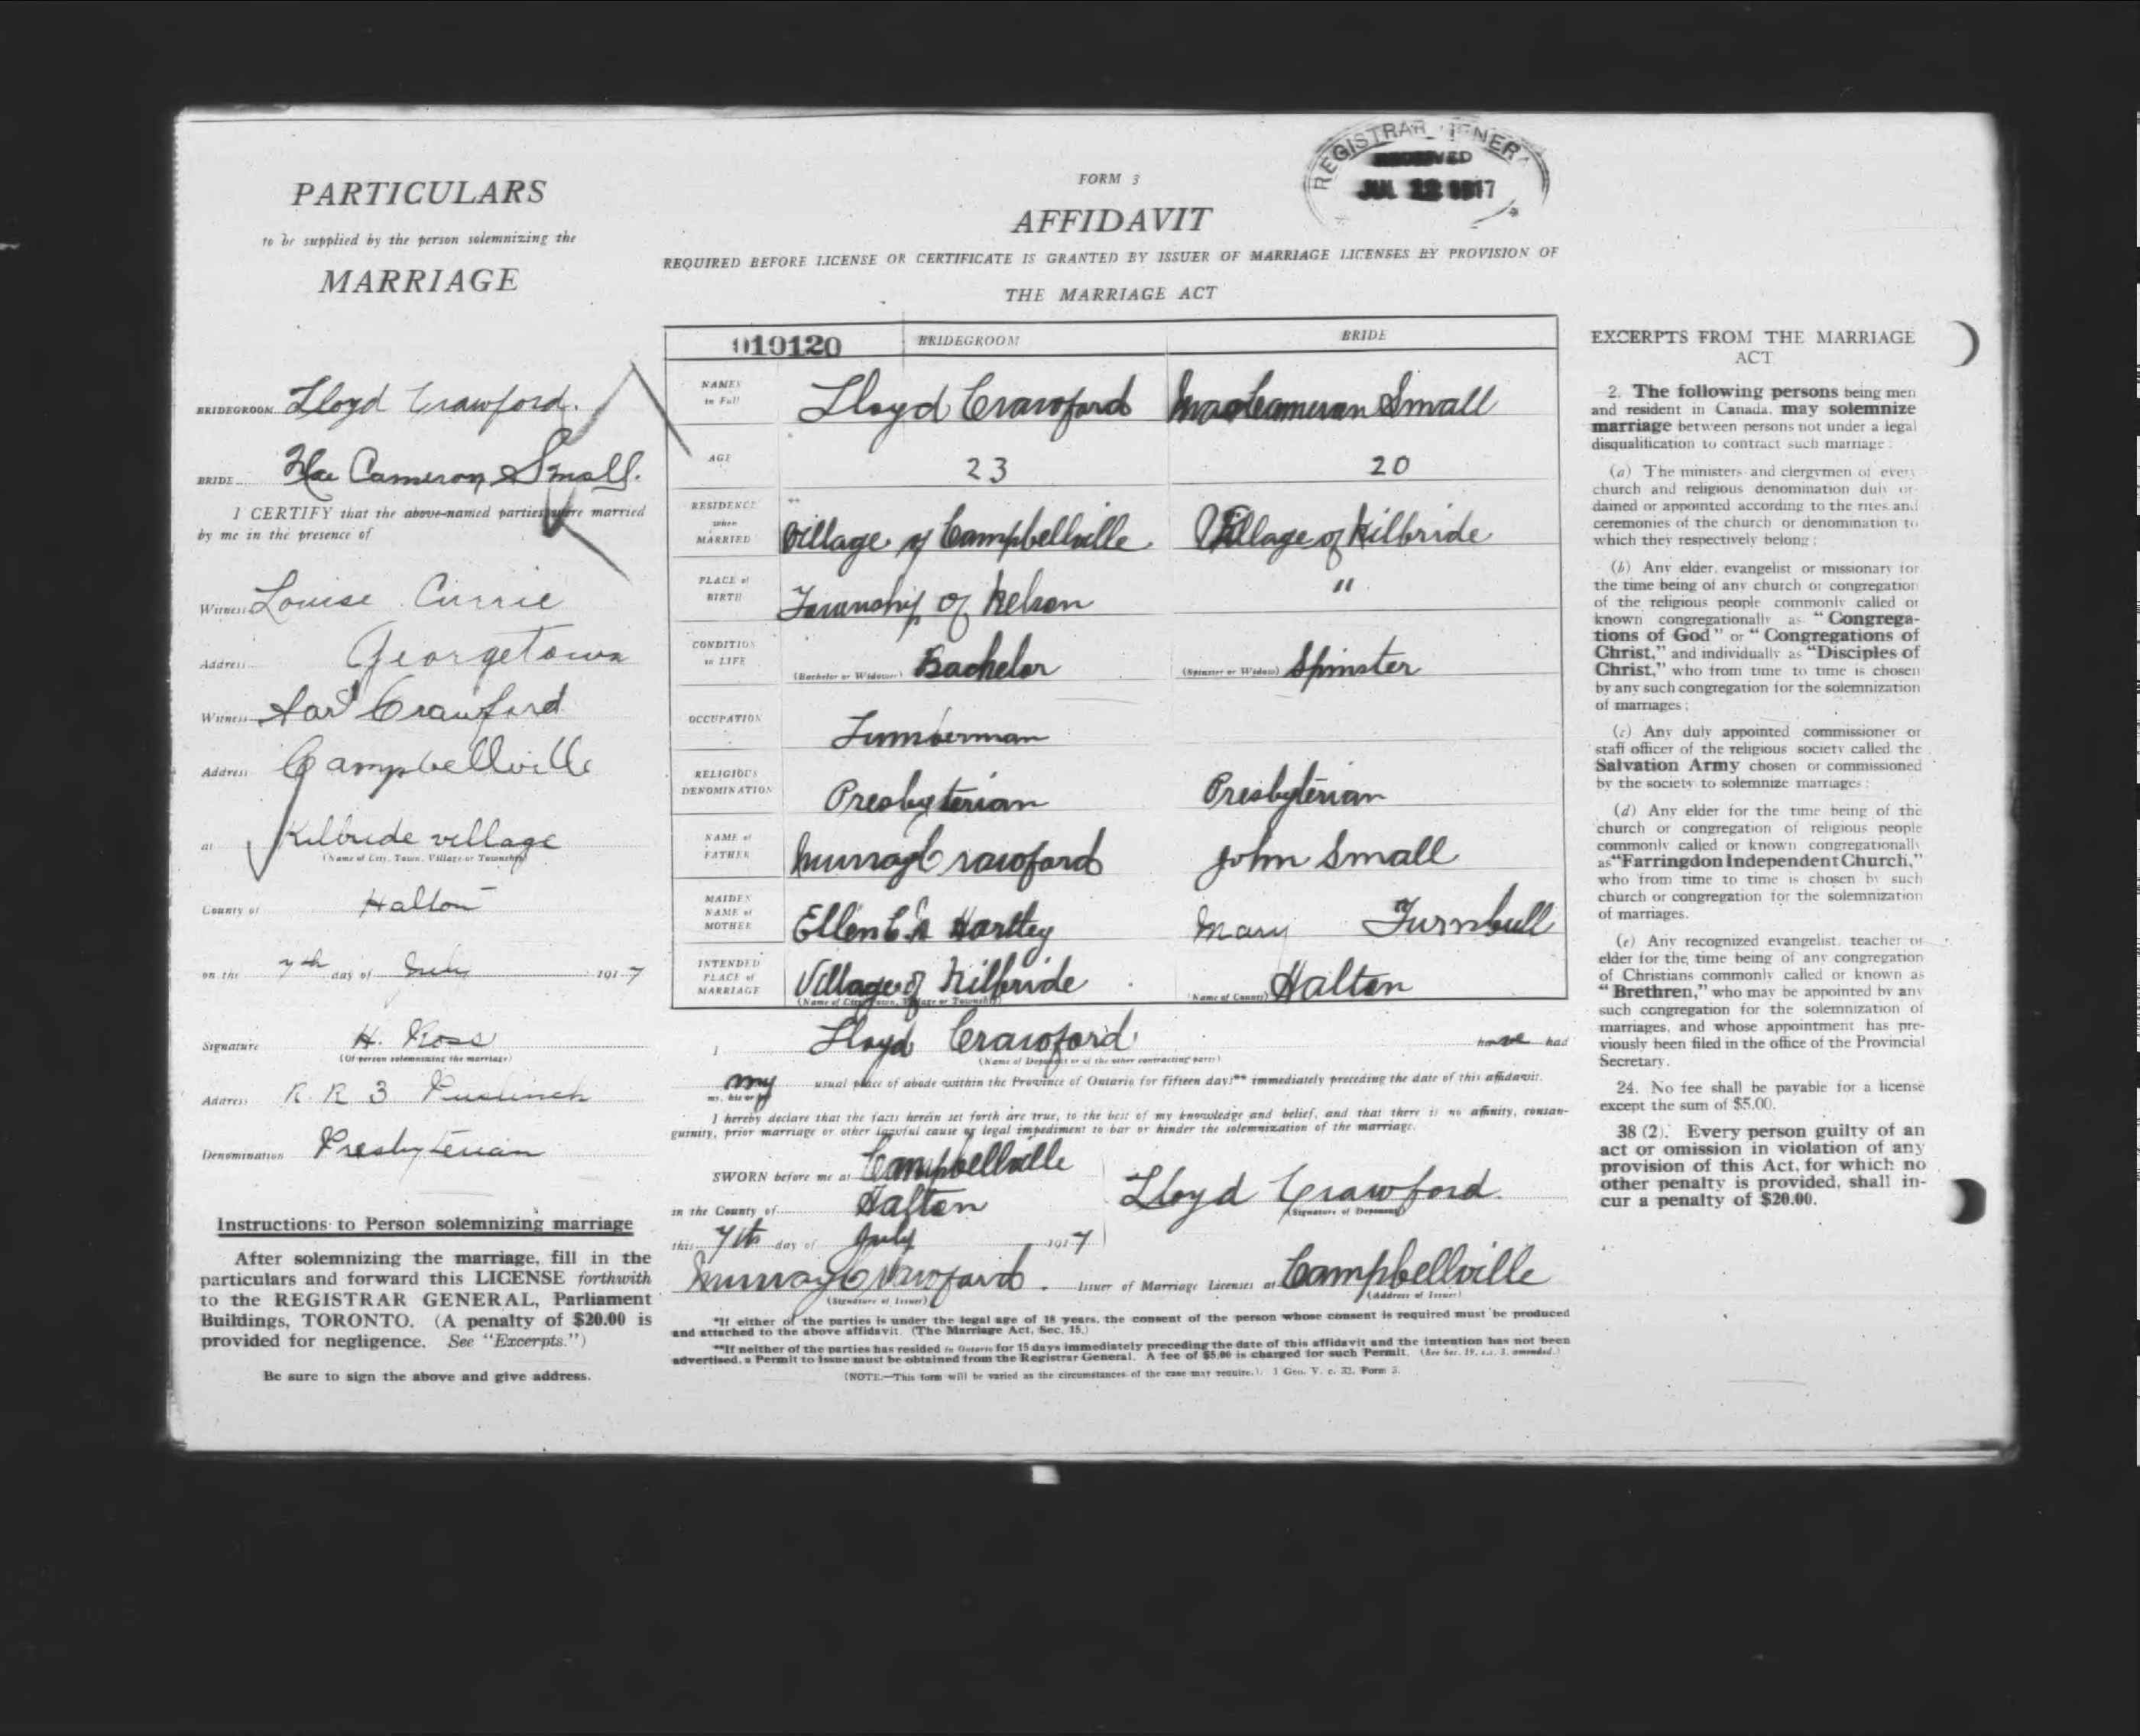 PARTICULARS
to be supplied by the person solemnizing the
MARRIAGE
BRIDEGROOM Lloyd Crawford.
BRIDE Mae Cameron Small.
I CERTIFY that the above-named parties were married
by me in the presence of
Witness Louise Currie
Address Georgetown
Witness Crawford
Address Campbellville
at Kilbride village
(Name of City, Town, Village or Township)
County of Halton
on the 7th day of July 1917
Signature H. Ross
(Of person solemnizing the marriage)
Address R. R 3 Puslinch
Denomination Presbyterian
Instructions to Person solemnizing marriage
After solemnizing the marriage, fill in the
particulars and forward this LICENSE forthwith
to the REGISTRAR GENERAL, Parliament
Buildings, TORONTO. (A penalty of $20.00 is
provided for negligence. See "Excerpts.")
Be sure to sign the above and give address.
FORM 3
AFFIDAVIT
REQUIRED BEFORE LICENSE OR CERTIFICATE IS GRANTED BY ISSUER OF MARRIAGE LICENSES BY PROVISION OF
THE MARRIAGE ACT
REGISTRAR GENERAL
RECEIVED
22 1917
019120 BRIDEGROOM BRIDE
NAMES in Full Lloyd Crawford Mae Cameron Small
AGE 23 20
RESIDENCE when MARRIED Village of Campbellville Village of Kilbride
PLACE of BIRTH Township of Nelson "
CONDITION in LIFE (Bachelor or Widower) Bachelor (Spinster or Widow) Spinster
OCCUPATION Lumberman
RELIGIOUS DENOMINATION Presbyterian Presbyterian
NAME of FATHER Murray Crawford John Small
MAIDEN NAME of MOTHER Ellen Hartley Mary Turnbull
INTENDED PLACE of MARRIAGE Village of Kilbride Halton
(Name of City, Town, Village or Township) (Name of County)
I Lloyd Crawford have had
(Name of Deponent or of the other contracting party)
my usual place of abode within the Province of Ontario for fifteen days** immediately preceding the date of this affidavit.
my, his or her
I hereby declare that the facts herein set forth are true, to the best of my knowledge and belief, and that there is no affinity, consan-
guinity, prior marriage or other lawful cause or legal impediment to bar or hinder the solemnization of the marriage.
SWORN before me at Campbellville
in the County of Halton Lloyd Crawford
(Signature of Deponent)
this 7th day of July 1917
Murray Crawford. Issuer of Marriage Licenses at Campbellville
(Signature of Issuer) (Address of Issuer)
*If either of the parties is under the legal age of 18 years, the consent of the person whose consent is required must be produced
and attached to the above affidavit. (The Marriage Act, Sec. 15.)
**If neither of the parties has resided in Ontario for 15 days immediately preceding the date of this affidavit and the intention has not been
advertised, a Permit to Issue must be obtained from the Registrar General. A fee of $5.00 is charged for such Permit. (See Sec. 19, s.s. 3, amended.)
(NOTE.—This form will be varied as the circumstances of the case may require.). 1 Geo. V. c. 32. Form 3.
EXCERPTS FROM THE MARRIAGE
ACT
2. The following persons being men
and resident in Canada, may solemnize
marriage between persons not under a legal
disqualification to contract such marriage:
(a) The ministers and clergymen of every
church and religious denomination duly or-
dained or appointed according to the rites and
ceremonies of the church or denomination to
which they respectively belong;
(b) Any elder, evangelist or missionary for
the time being of any church or congregation
of the religious people commonly called or
known congregationally as "Congrega-
tions of God" or "Congregations of
Christ," and individually as "Disciples of
Christ," who from time to time is chosen
by any such congregation for the solemnization
of marriages;
(c) Any duly appointed commissioner or
staff officer of the religious society called the
Salvation Army chosen or commissioned
by the society to solemnize marriages;
(d) Any elder for the time being of the
church or congregation of religious people
commonly called or known congregationally
as "Farringdon Independent Church,"
who from time to time is chosen by such
church or congregation for the solemnization
of marriages.
(e) Any recognized evangelist, teacher or
elder for the, time being of any congregation
of Christians commonly called or known as
"Brethren," who may be appointed by any
such congregation for the solemnization of
marriages, and whose appointment has pre-
viously been filed in the office of the Provincial
Secretary.
24. No fee shall be payable for a license
except the sum of $5.00.
38 (2). Every person guilty of an
act or omission in violation of any
provision of this Act, for which no
other penalty is provided, shall in-
cur a penalty of $20.00.